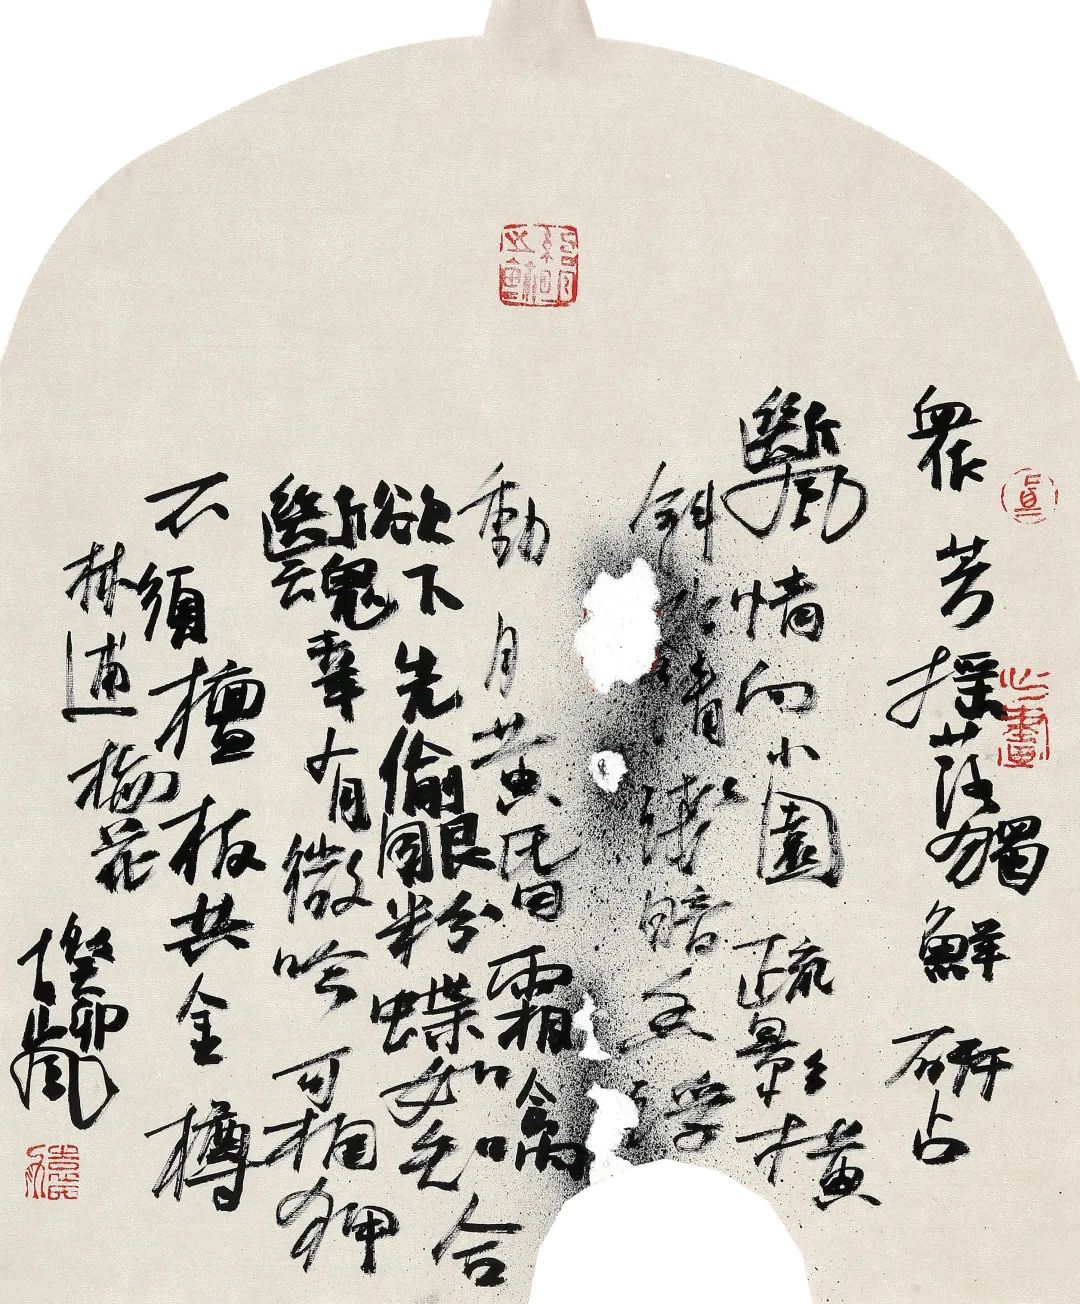 眾芳搖落獨鮮研占
斷風情向小園疏影橫
斜水清淺暗香浮
動月黃昏霜禽
欲下先偷眼粉蝶如知合
斷魂幸有微吟可相狎
不須檀板共金樽
林逋梅花
癸卯
心畫